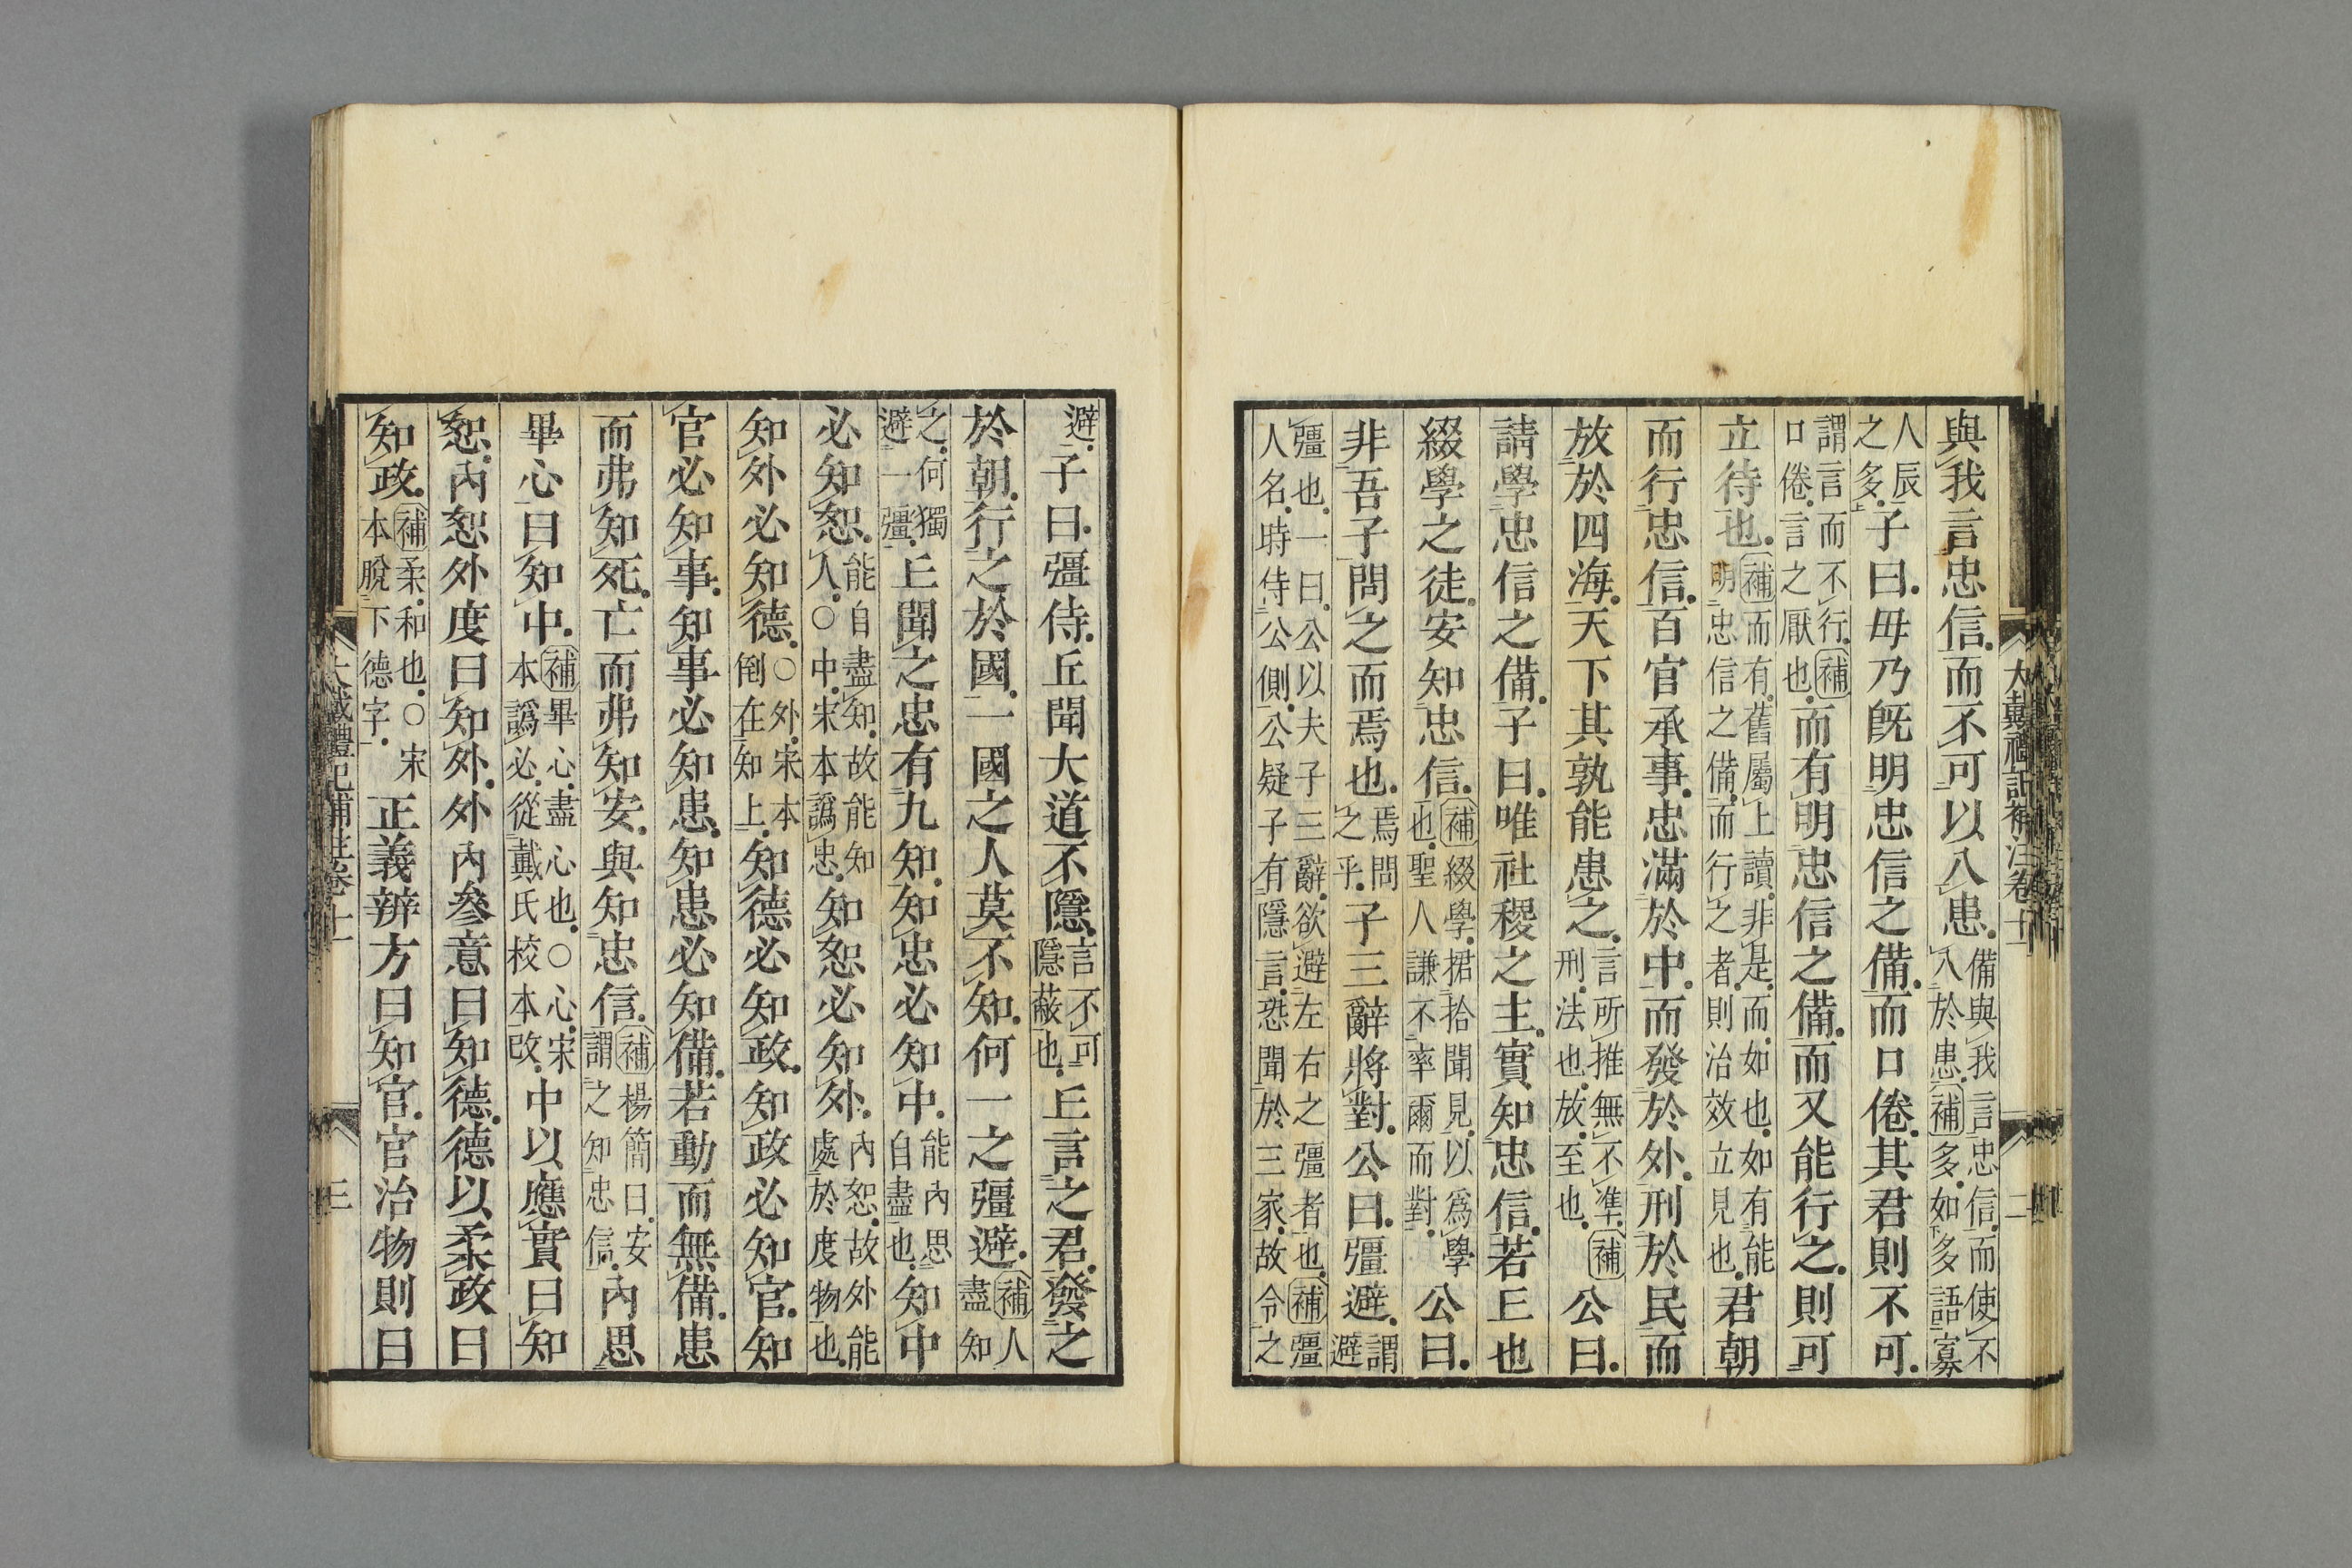 與我言忠信而不可以入患備與我言忠信而使不
入於患補多如多語寡
人辰
之多子曰毋乃旣明忠信之備而口倦其君則不可
謂言而不行補
口倦言之厭也而有明忠信之備而又能行之則可
立待也補而有舊屬上讀非是而如也如有能
明忠信之備而行之者則治效立見也君朝
而行忠信百官承事忠滿於中而發於外刑於民而
放於四海天下其孰能患之言所推無不準補
刑法也放至也公曰
請學忠信之備子曰唯社稷之主實知忠信若丘也
綴學之徒安知忠信補綴學捃拾聞見以爲學
也聖人謙不率爾而對公曰
非吾子問之而焉也焉問
之乎子三辭將對公曰彊避謂
避
彊也一曰公以夫子三辭欲避左右之彊者也補彊
人名時侍公側公疑子有隱言恐聞於三家故令之
大戴禮記補注卷十一
二
避子曰彊侍丘聞大道不隱言不可
隱蔽也丘言之君發之
於朝行之於國一國之人莫不知何一之彊避補人
盡知
之何獨
避一彊丘聞之忠有九知知忠必知中能內思
自盡也知中
必知恕能自盡知故能知
人〇中宋本譌忠知恕必知外內恕故外能
處於度物也
知外必知德〇外宋本
倒在知上知德必知政知政必知官知
官必知事知事必知患知患必知備若動而無備患
而弗知死亡而弗知安與知忠信補楊簡曰安
謂之知忠信內思
畢心曰知中補畢心盡心也〇心宋
本譌必從戴氏校本改中以應實曰知
恕內恕外度曰知外外內參意曰知德德以柔政曰
知政補柔和也〇宋
本脫下德字正義辨方曰知官官治物則曰
大戴禮記補注卷十一
三